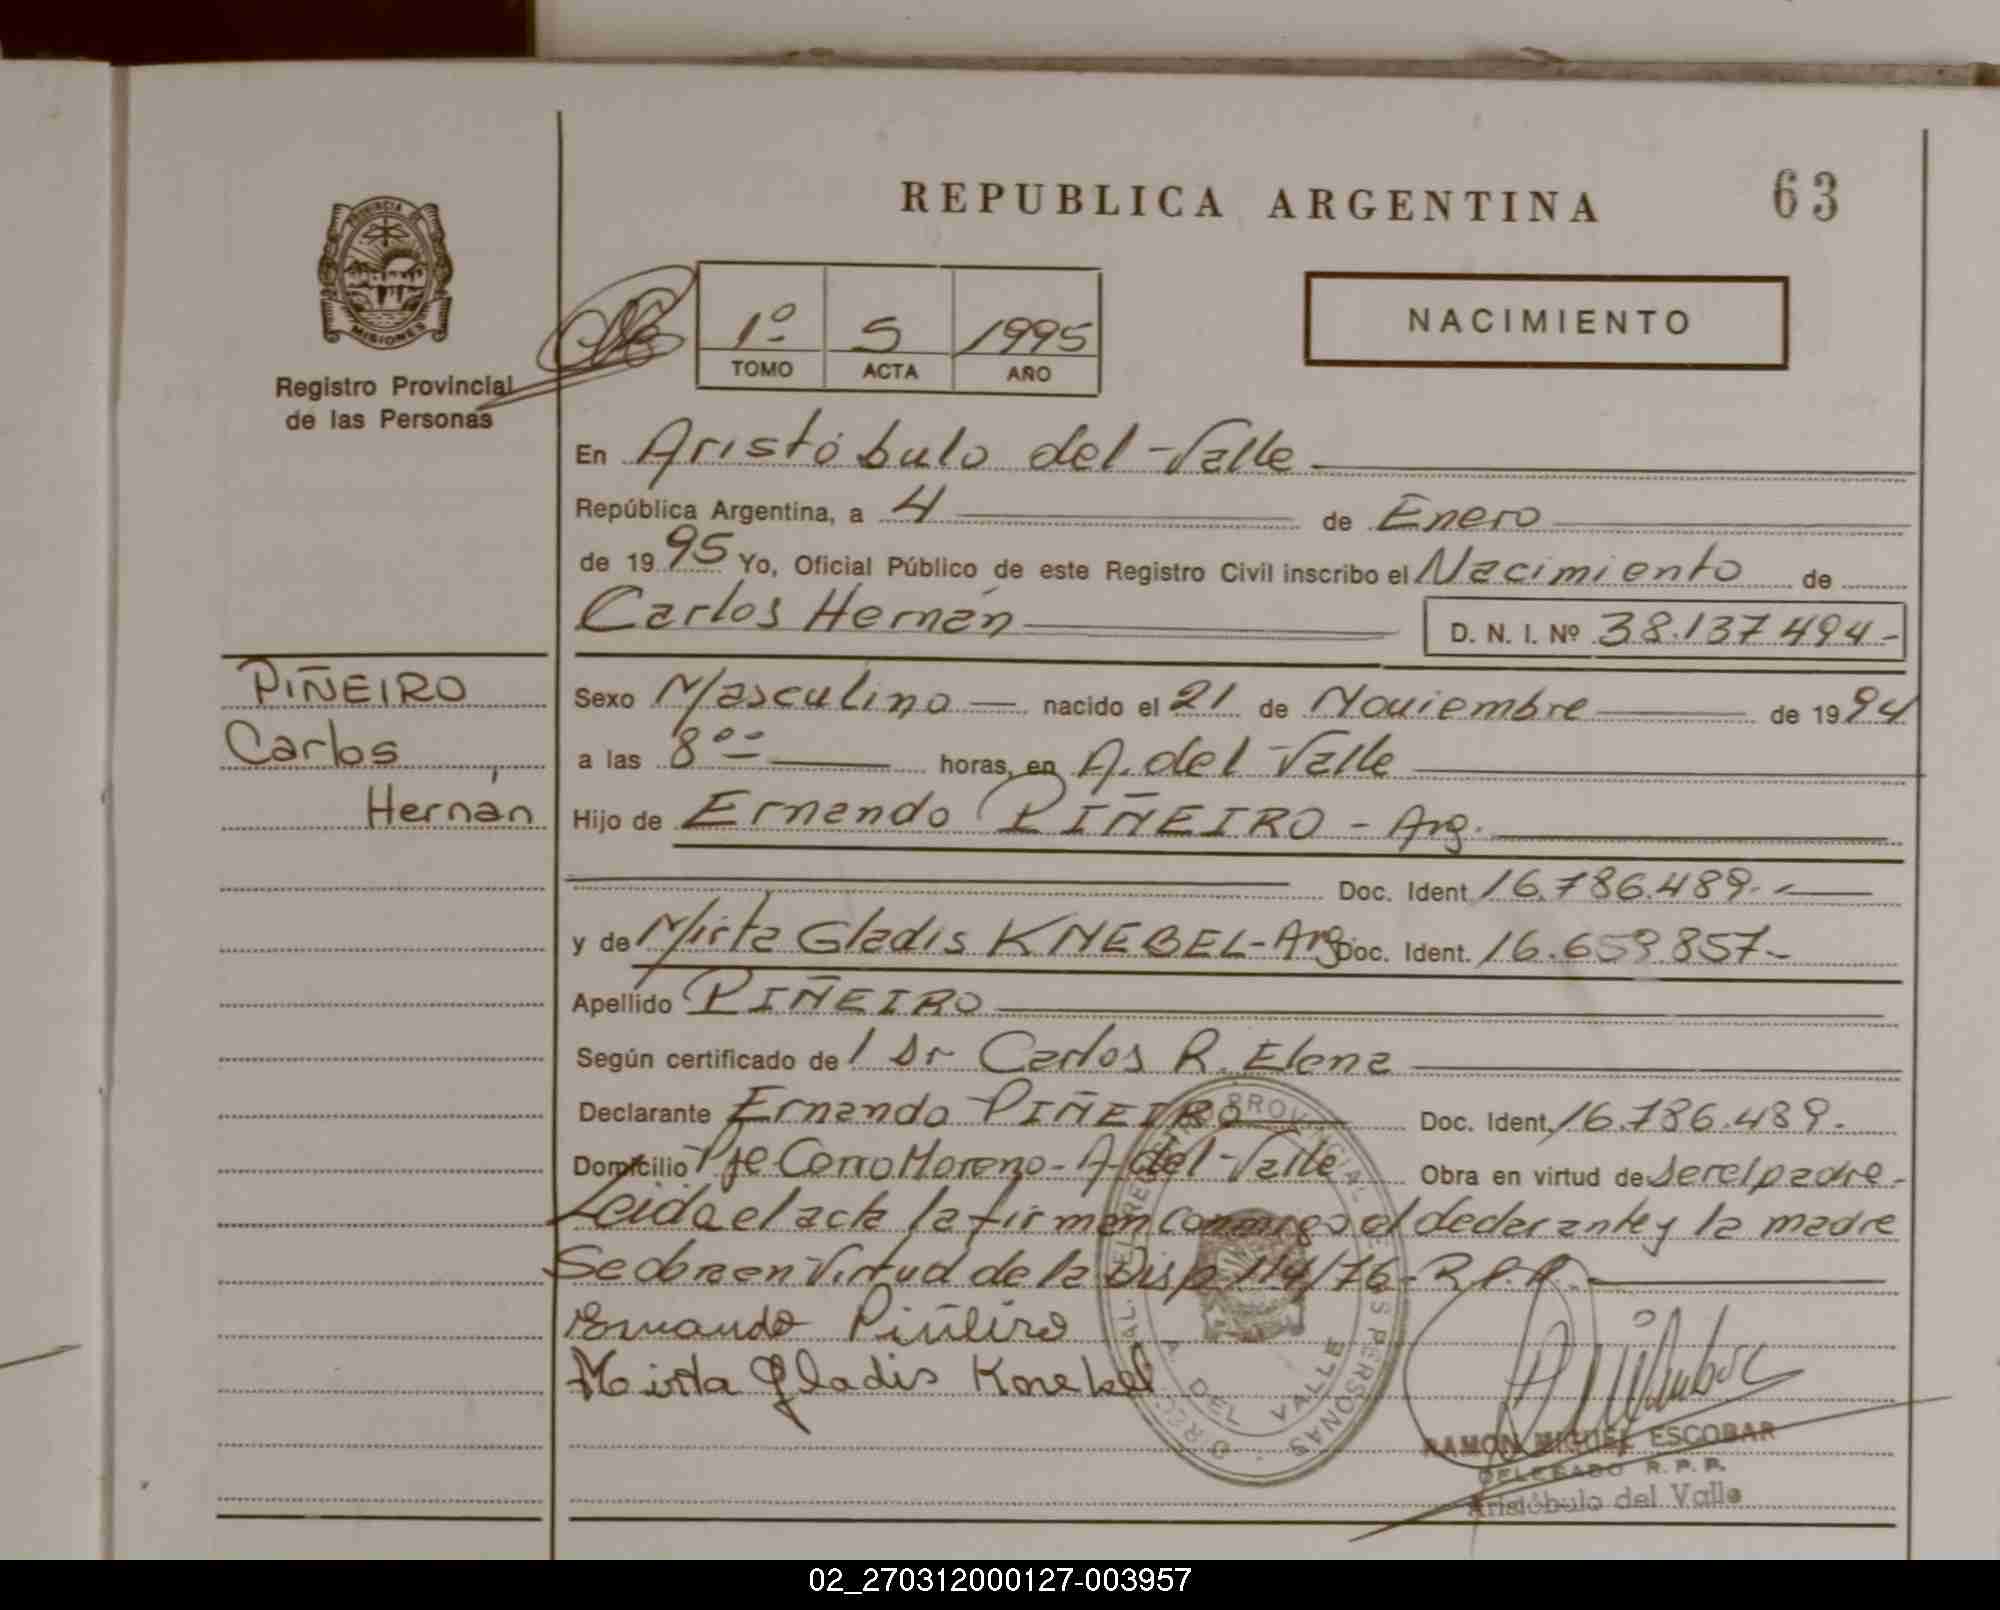 REPUBLICA ARGENTINA
63
PROVINCIA DE
MISIONES
Registro Provincial
de las Personas
1º 5 1995
TOMO ACTA AÑO
NACIMIENTO
En Aristóbulo del Valle
República Argentina, a 4 de Enero
de 1995 Yo, Oficial Público de este Registro Civil inscribo el Nacimiento de
Carlos Hernán D. N. I. Nº 38.137.494-
PIÑEIRO
Carlos
Hernán
Sexo Masculino nacido el 21 de Noviembre de 1994
a las 8ºº horas, en A. del Valle
Hijo de Ernando PIÑEIRO - Arg.
Doc. Ident. 16.786.489.-
y de Mirta Gladis KNEBEL - Arg. Doc. Ident. 16.659.857-
Apellido PIÑEIRO
Según certificado de l Dr Carlos R. Elena
Declarante Ernando PIÑEIRO Doc. Ident. 16.786.489.
Domicilio Pje Cerro Moreno - A. del Valle Obra en virtud de ser el padre -
Leida el acta la firman conmigo el declarante y la madre
Se obra en Virtud de la Disp. 114/76 - R.P.P.
Ernando Piñeiro
Mirta Gladis Knebel
RAMON MIGUEL ESCOBAR
DELEGADO R. P. P.
Aristóbulo del Valle
A. DEL VALLE
02_270312000127-003957